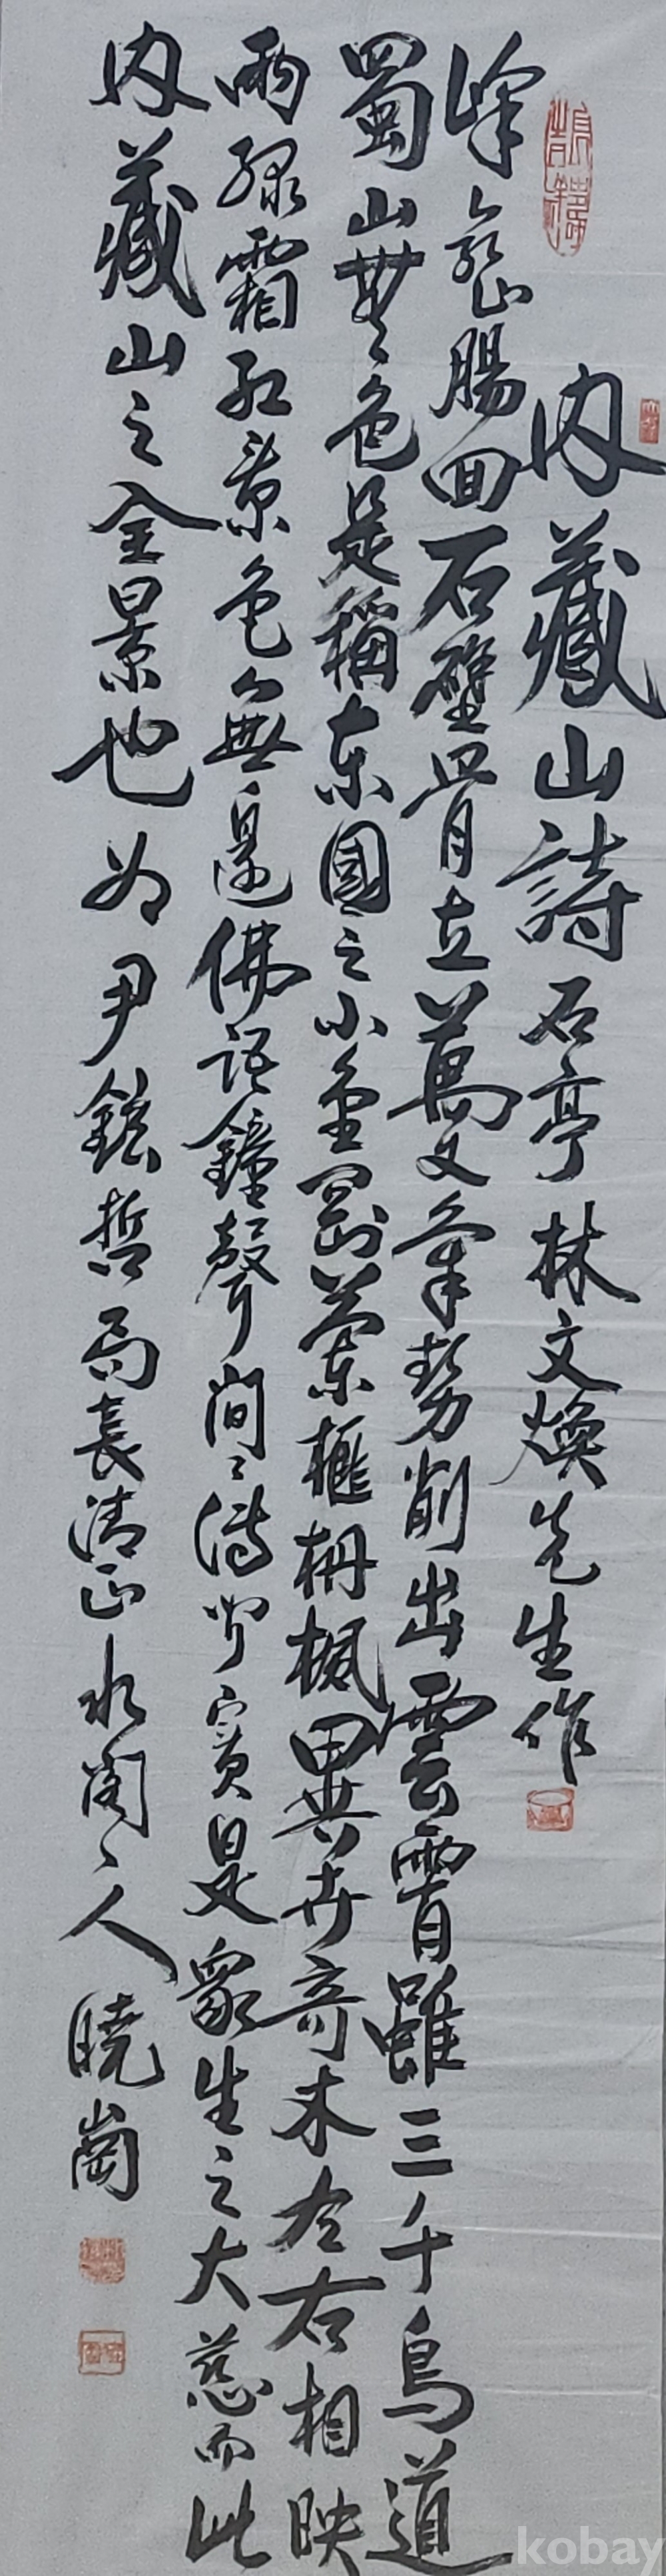 內藏山詩 石亭 林文煥先生作
峰巒腸回石壁骨立萬丈氣勢削出雲霄雖三千鳥道
蜀山無色是稱東國之小金剛叢榧丹楓異卉奇木左右相映
雨綠霜紅景色無邊佛語鐘聲間間得聞實是衆生之大慈而此
內藏山之全景也 為尹鉉哲局長淸正 水閣人 曉崗
kobay